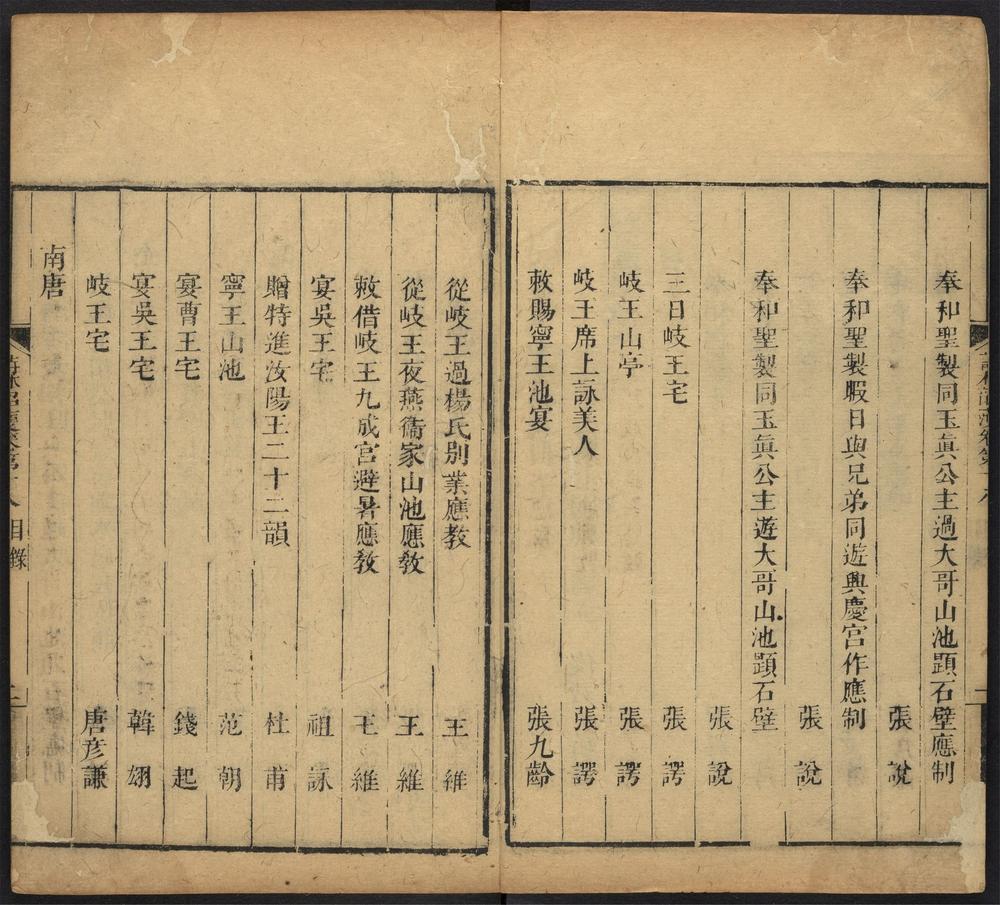 奉和聖製同玉眞公主過大哥山池題石壁應制
張說
奉和聖製暇日與兄弟同遊興慶宮作應制
張說
奉和聖製同玉眞公主遊大哥山池題石壁
張說
三日岐王宅 張諤
岐王山亭 張諤
岐王席上詠美人 張諤
敕賜寧王池宴 張九齡
從岐王過楊氏別業應教 王維
從岐王夜燕衞家山池應敎 王維
敕借岐王九成宮避暑應敎 王維
宴吳王宅 祖詠
贈特進汝陽王二十二韻 杜甫
寧王山池 范朝
宴曹王宅 錢起
宴吳王宅 韓翃
岐王宅 唐彥謙
南唐
目錄 二